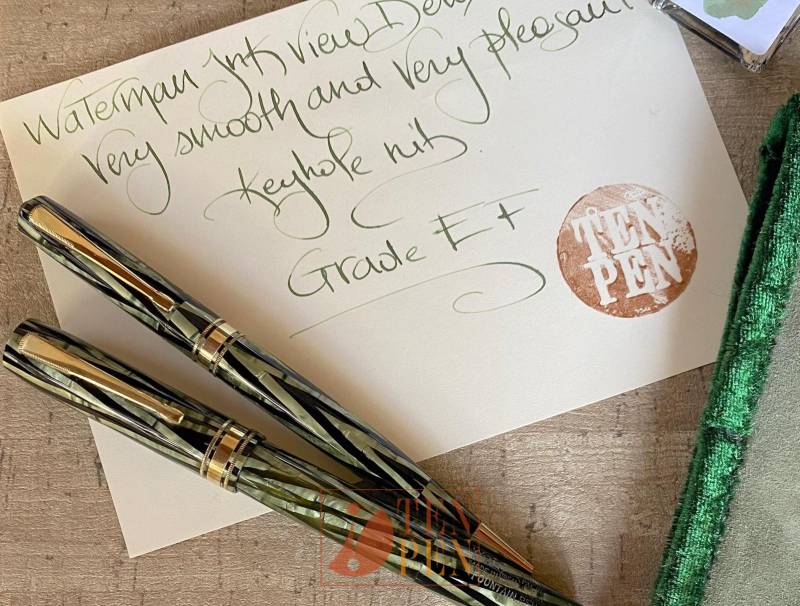 Waterman Ink View
very smooth and very pleasant
Keyhole nib.
Grade EF
TEN
PEN
TEN
PEN
FOUNTAIN